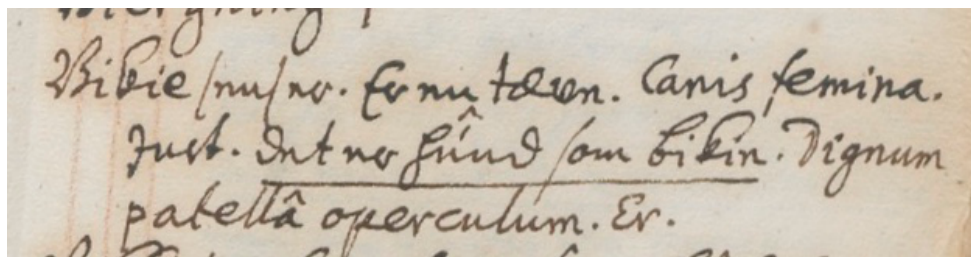 Bikie snusner. Er nu tæven. Canis femina.
Just. det er hûnd som bikin. Dignum
patellâ operculum. Er.